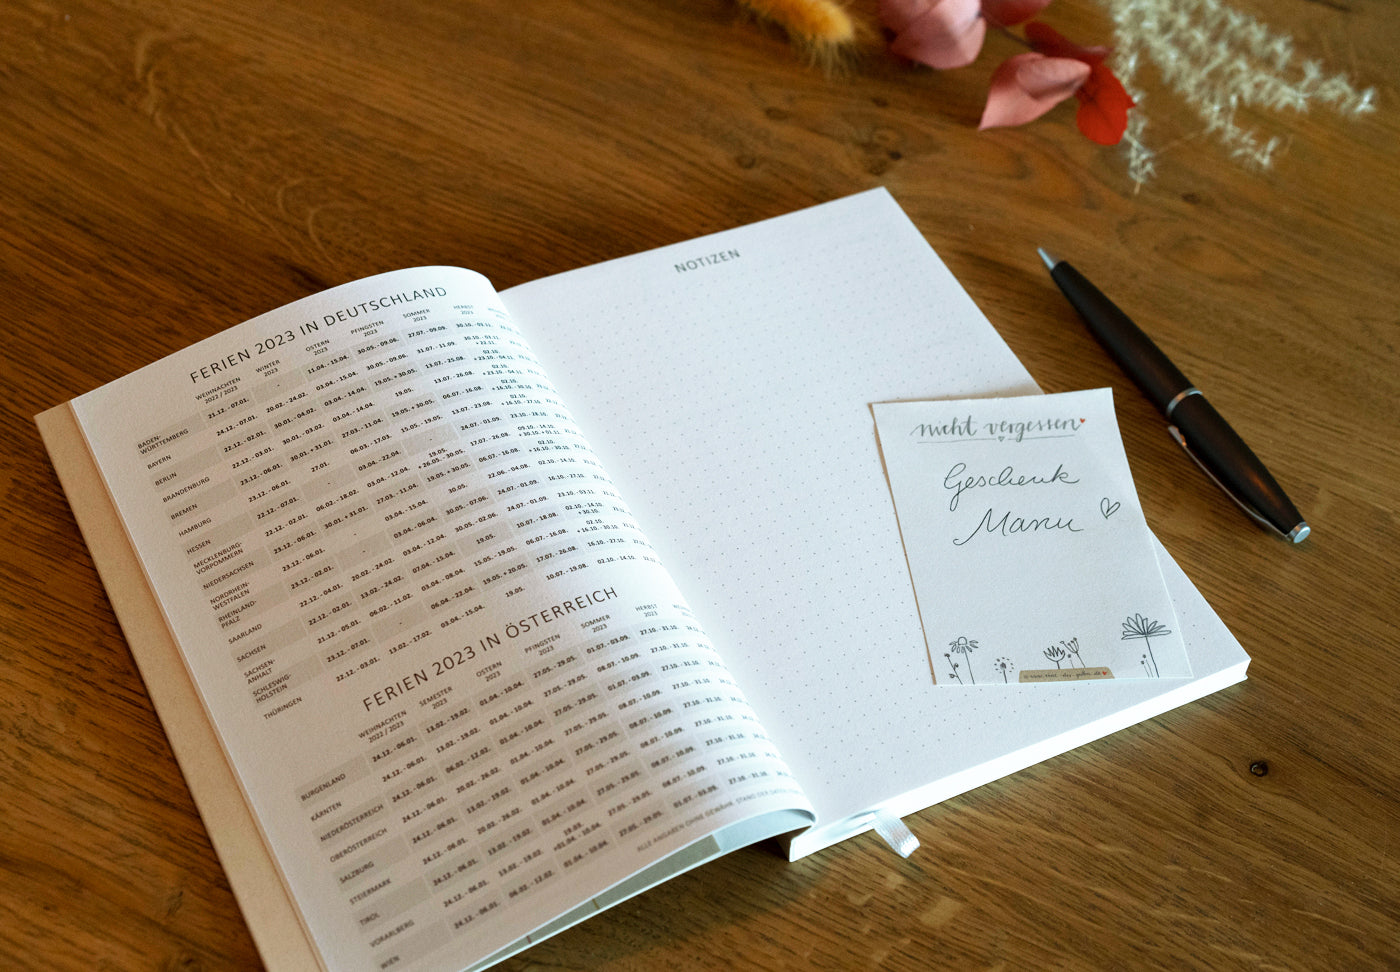 FERIEN 2023 IN DEUTSCHLAND
WEIHNACHTEN 2022 / 2023 WINTER 2023 OSTERN 2023 PFINGSTEN 2023 SOMMER 2023 HERBST 2023
BADEN-WÜRTTEMBERG 21.12. - 07.01. - 11.04. - 15.04. 30.05. - 09.06. 27.07. - 09.09. 30.10. - 03.11.
BAYERN 24.12. - 07.01. 20.02. - 24.02. 03.04. - 15.04. 30.05. - 09.06. 31.07. - 11.09. 30.10. - 03.11. + 22.11.
BERLIN 22.12. - 02.01. 30.01. - 04.02. 03.04. - 14.04. 19.05. + 30.05. 13.07. - 25.08. 02.10. + 23.10. - 04.11.
BRANDENBURG 22.12. - 03.01. 30.01. - 03.02. 03.04. - 14.04. 19.05. 13.07. - 26.08. 02.10. + 23.10. - 04.11.
BREMEN 23.12. - 06.01. 30.01. + 31.01. 27.03. - 11.04. 19.05. + 30.05. 06.07. - 16.08. 02.10. + 16.10. - 30.10.
HAMBURG 23.12. - 06.01. 27.01. 06.03. - 17.03. 15.05. - 19.05. 13.07. - 23.08. 02.10. + 16.10. - 27.10.
HESSEN 22.12. - 07.01. - 03.04. - 22.04. - 24.07. - 01.09. 23.10. - 28.10.
MECKLENBURG-VORPOMMERN 22.12. - 02.01. 06.02. - 18.02. 03.04. - 12.04. 19.05. + 26.05. - 30.05. 17.07. - 26.08. 09.10. - 14.10. + 30.10. + 01.11.
NIEDERSACHSEN 23.12. - 06.01. 30.01. + 31.01. 27.03. - 11.04. 19.05. + 30.05. 06.07. - 16.08. 02.10. + 16.10. - 30.10.
NORDRHEIN-WESTFALEN 23.12. - 06.01. - 03.04. - 15.04. 30.05. 22.06. - 04.08. 02.10. - 14.10.
RHEINLAND-PFALZ 23.12. - 02.01. - 03.04. - 06.04. 30.05. - 07.06. 24.07. - 01.09. 16.10. - 27.10.
SAARLAND 22.12. - 04.01. 20.02. - 24.02. 03.04. - 12.04. 30.05. - 02.06. 24.07. - 01.09. 23.10. - 03.11.
SACHSEN 22.12. - 02.01. 13.02. - 24.02. 07.04. - 15.04. 19.05. 10.07. - 18.08. 02.10. - 14.10. + 30.10.
SACHSEN-ANHALT 21.12. - 05.01. 06.02. - 11.02. 03.04. - 08.04. 15.05. - 19.05. 06.07. - 16.08. 02.10. + 16.10. - 30.10.
SCHLESWIG-HOLSTEIN 23.12. - 07.01. - 06.04. - 22.04. 19.05. + 20.05. 17.07. - 26.08. 16.10. - 27.10.
THÜRINGEN 22.12. - 03.01. 13.02. - 17.02. 03.04. - 15.04. 19.05. 10.07. - 19.08. 02.10. - 14.10.
FERIEN 2023 IN ÖSTERREICH
WEIHNACHTEN 2022 / 2023 SEMESTER 2023 OSTERN 2023 PFINGSTEN 2023 SOMMER 2023 HERBST 2023
BURGENLAND 24.12. - 06.01. 13.02. - 19.02. 01.04. - 10.04. 27.05. - 29.05. 01.07. - 03.09. 27.10. - 31.10.
KÄRNTEN 24.12. - 06.01. 13.02. - 19.02. 01.04. - 10.04. 27.05. - 29.05. 08.07. - 10.09. 27.10. - 31.10.
NIEDERÖSTERREICH 24.12. - 06.01. 06.02. - 12.02. 01.04. - 10.04. 27.05. - 29.05. 01.07. - 03.09. 27.10. - 31.10.
OBERÖSTERREICH 24.12. - 06.01. 20.02. - 26.02. 01.04. - 10.04. 27.05. - 29.05. 08.07. - 10.09. 27.10. - 31.10.
SALZBURG 24.12. - 06.01. 13.02. - 19.02. 01.04. - 10.04. 27.05. - 29.05. 08.07. - 10.09. 27.10. - 31.10.
STEIERMARK 24.12. - 06.01. 20.02. - 26.02. 01.04. - 10.04. 27.05. - 29.05. 08.07. - 10.09. 27.10. - 31.10.
TIROL 24.12. - 06.01. 13.02. - 19.02. 01.04. - 10.04. 27.05. - 29.05. 08.07. - 10.09. 27.10. - 31.10.
VORARLBERG 24.12. - 06.01. 13.02. - 19.02. 19.03. +01.04. - 10.04. 27.05. - 29.05. 08.07. - 10.09. 27.10. - 31.10.
WIEN 24.12. - 06.01. 06.02. - 12.02. 01.04. - 10.04. 27.05. - 29.05. 01.07. - 03.09. 27.10. - 31.10.
ALLE ANGABEN OHNE GEWÄHR. STAND DER DATEN
NOTIZEN
nicht vergessen
Geschenk
Manu